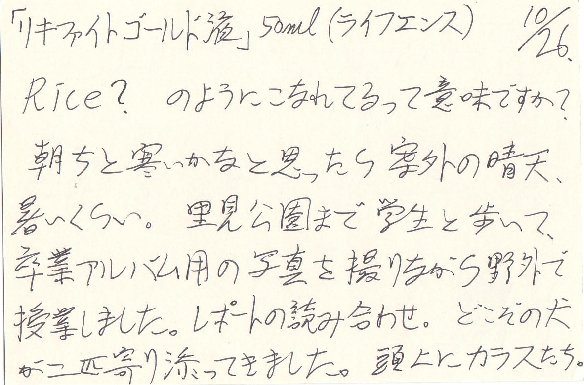 「リキファイトゴールド液」50ml(ライフエンス) 10/26.
Rice? のようにこなれてるって意味ですか?
朝ちと寒いかなと思ったら案外の晴天、
暑いくらい。里見公園まで学生と歩いて、
卒業アルバム用の写真を撮りながら野外で
授業しました。レポートの読み合わせ。どこぞの犬
が二匹寄り添ってきました。頭上にカラスたち。